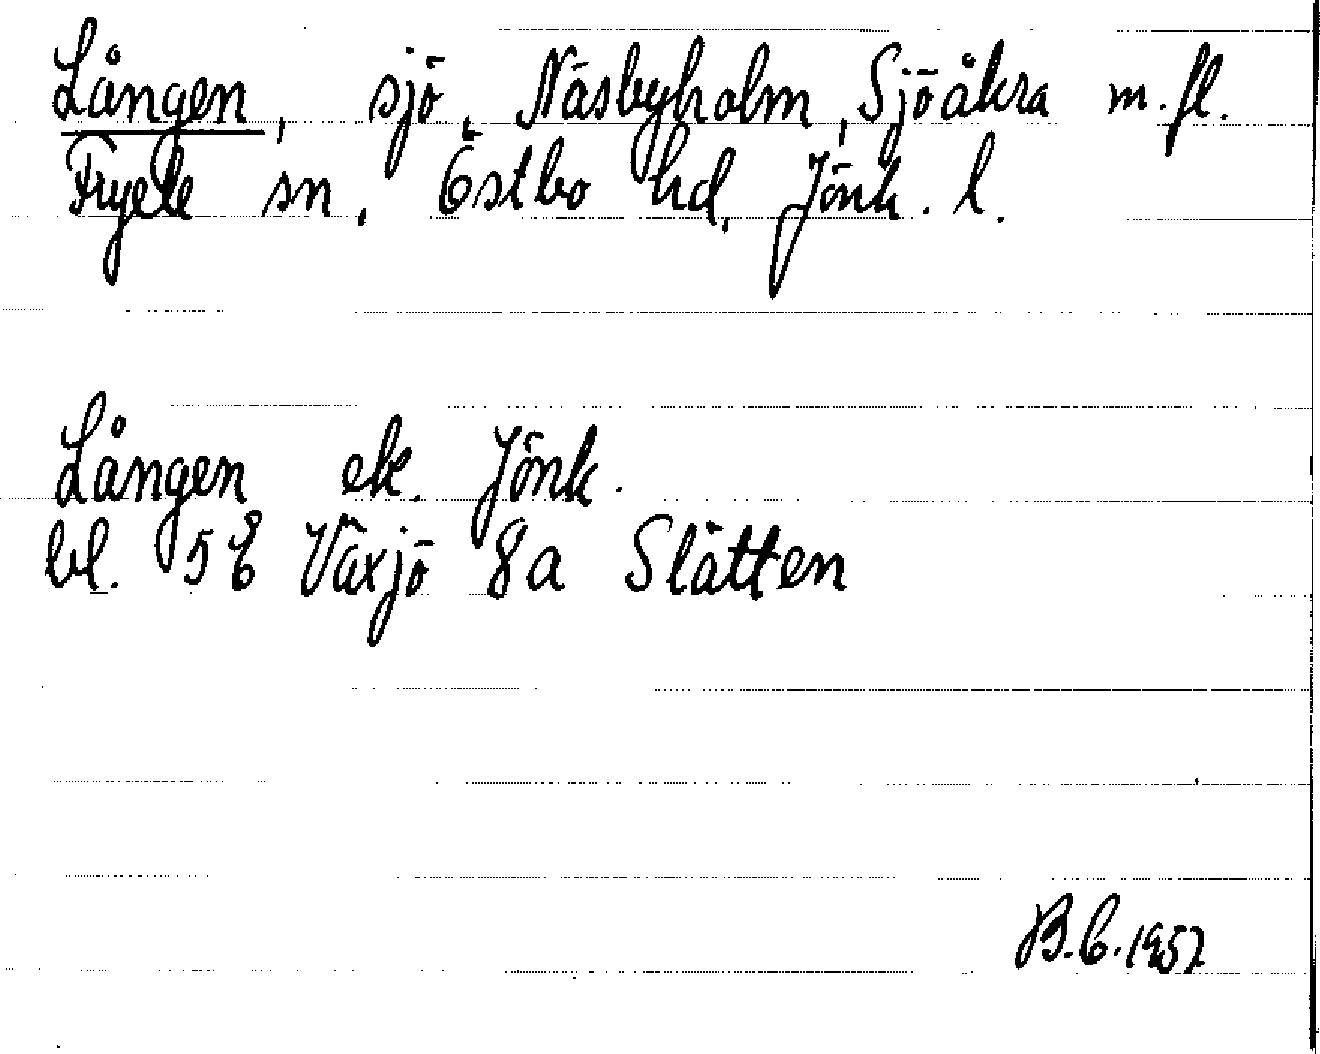 Lången, sjö, Näsbyholm, Sjöåkra m.fl.
Fryele sn, Östbo hd, Jönk. l.
Lången ek. Jönk.
bl. 5 E Växjö 8a Slätten
B.C. 1957